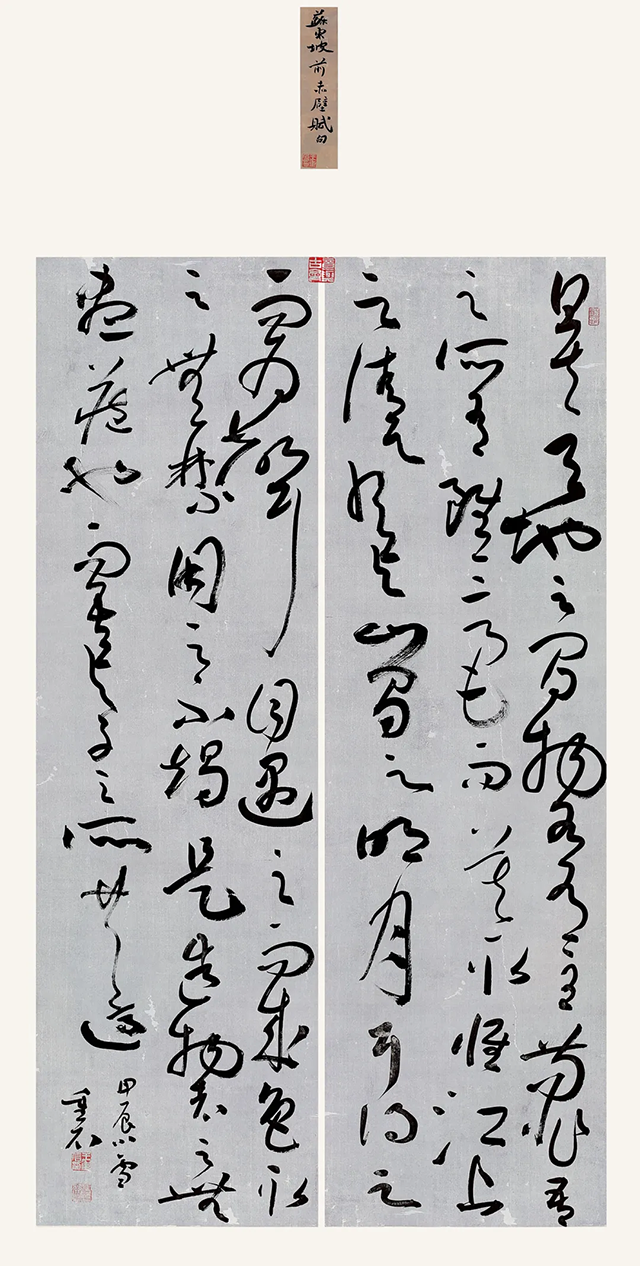 蘇東坡前赤壁賦句
且夫天地之間物各有主苟非吾
之所有雖一毫而莫取惟江上
之清風與山間之明月耳得之
而為聲目遇之而成色取
之無禁用之不竭是造物者之無
盡藏也而吾與子之所共適
甲辰小雪